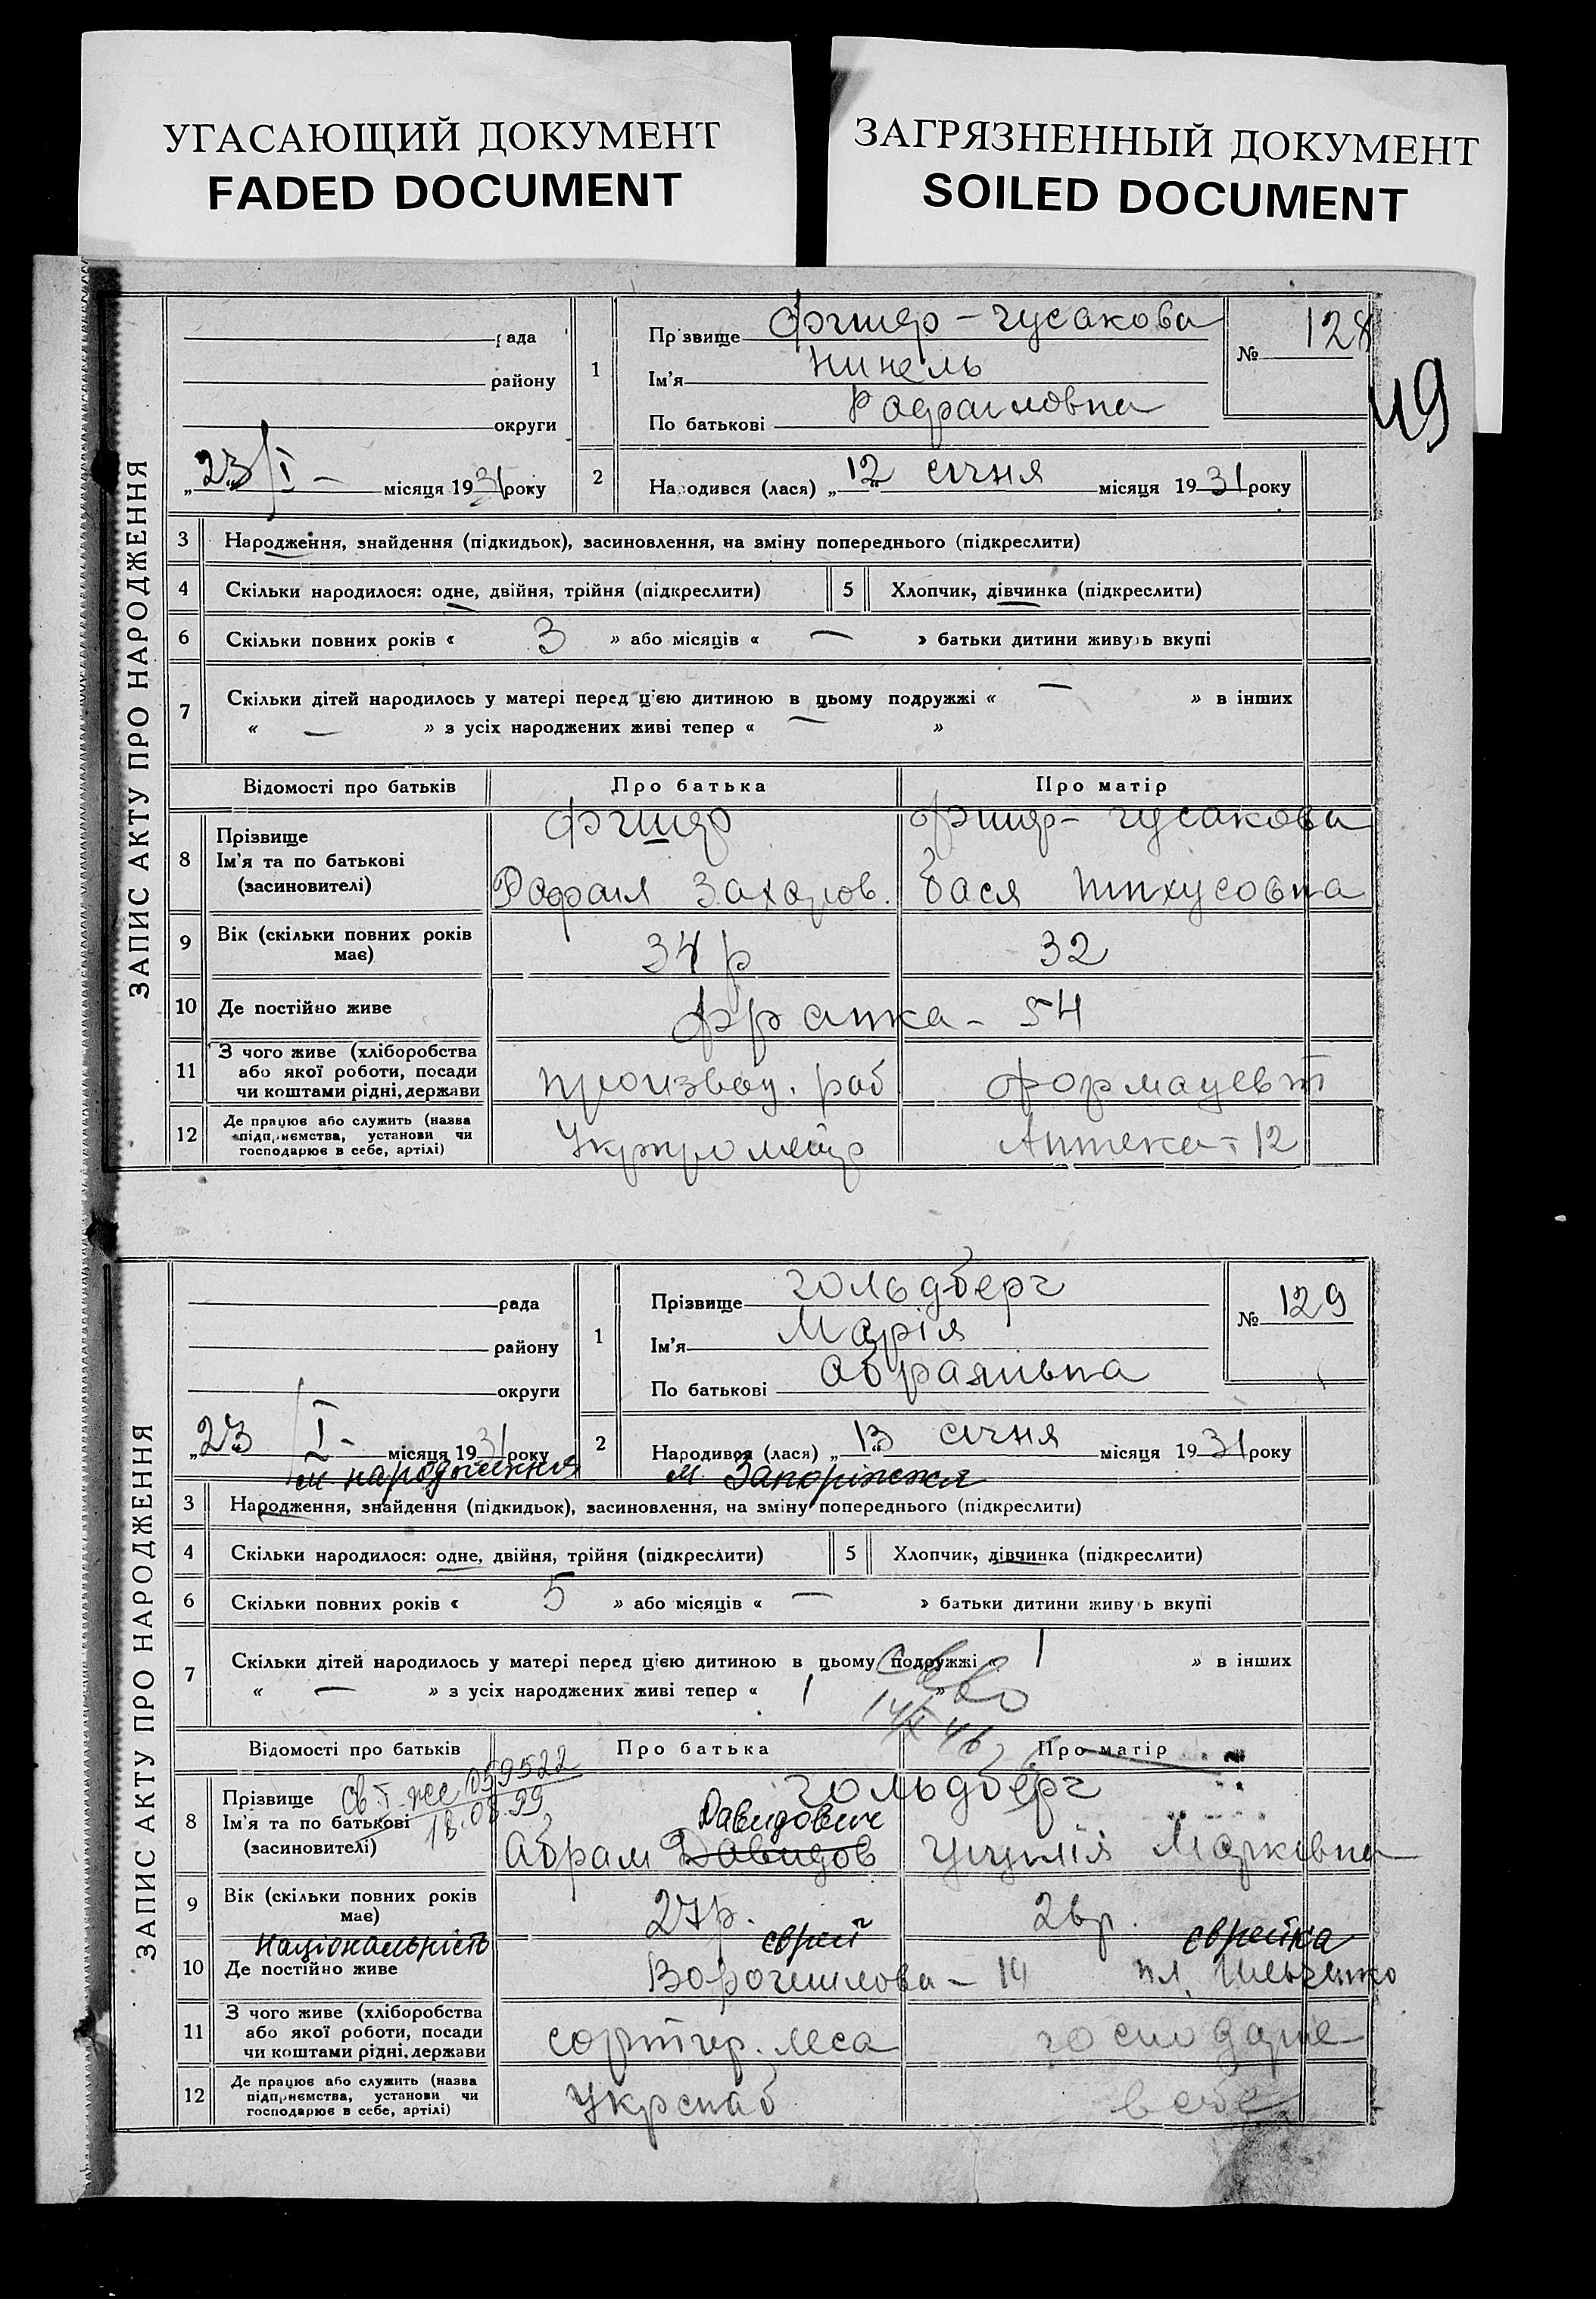 УГАСАЮЩИЙ ДОКУМЕНТ
FADED DOCUMENT
ЗАГРЯЗНЕННЫЙ ДОКУМЕНТ
SOILED DOCUMENT
49
ЗАПИС АКТУ ПРО НАРОДЖЕННЯ
рада
району
округи
„23/I - місяця 1931 року
1
Прізвище Фішер - Гусакова
Ім'я Нинель
По батькові Рафаиловна
№ 128
2 Народився (лася) „12“ січня місяця 1931 року
3 Народження, знайдення (підкидьок), засиновлення, на зміну попереднього (підкреслити)
4 Скільки народилося: одне, двійня, трійня (підкреслити) 5 Хлопчик, дівчинка (підкреслити)
6 Скільки повних років « 3 » або місяців « — » батьки дитини живуть вкупі
7 Скільки дітей народилось у матері перед цією дитиною в цьому подружжі « — » в інших
« — » з усіх народжених живі тепер « — »
Відомості про батьків Про батька Про матір
8 Прізвище
Ім'я та по батькові
(засиновителі)
Фішер
Рафаил Захаров.
Фішер - Гусакова
Бася
9 Вік (скільки повних років має) 34 р 32
10 Де постійно живе Франка - 54
11 З чого живе (хліборобства
або якої роботи, посади
чи коштами рідні, держави
производ. раб фармацевт
12 Де працює або служить (назва
підприємства, установи чи
господарює в себе, артілі)
Аптека - 12
ЗАПИС АКТУ ПРО НАРОДЖЕННЯ
рада
району
округи
„23 I - місяця 1931 року
1
Прізвище Гольдберг
Ім'я Марія
По батькові Абрамівна
№ 129
2 Народився (лася) „13“ січня місяця 1931 року
м народження м. Запоріжжя
3 Народження, знайдення (підкидьок), засиновлення, на зміну попереднього (підкреслити)
4 Скільки народилося: одне, двійня, трійня (підкреслити) 5 Хлопчик, дівчинка (підкреслити)
6 Скільки повних років « 5 » або місяців « — » батьки дитини живуть вкупі
7 Скільки дітей народилось у матері перед цією дитиною в цьому подружжі « 1 » в інших
« — » з усіх народжених живі тепер « 1 »
Відомості про батьків Про батька Про матір
059522
18.08.99
8 Прізвище
Ім'я та по батькові
(засиновителі)
Гольдберг
Давидович
Абрам Давидов
Марківна
9 Вік (скільки повних років має) 27р.
Національність єврей єврейка
10 Де постійно живе Ворошилова - 14
11 З чого живе (хліборобства
або якої роботи, посади
чи коштами рідні, держави
сортир. леса господарює
12 Де працює або служить (назва
підприємства, установи чи
господарює в себе, артілі)
Укрснаб в себе